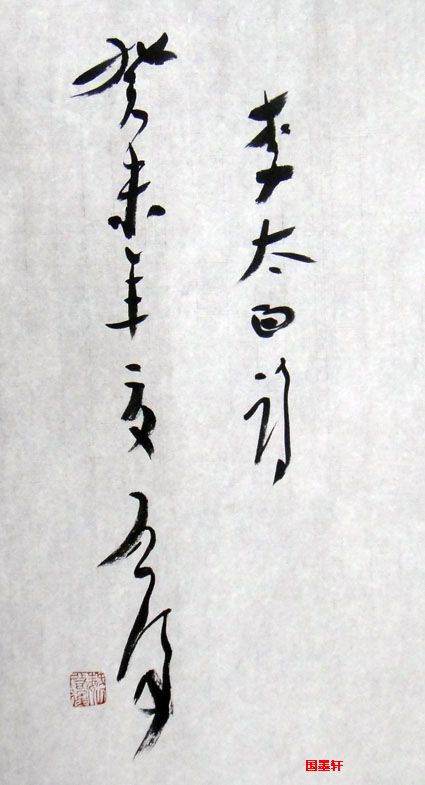 李太白诗
癸未年夏
国墨轩